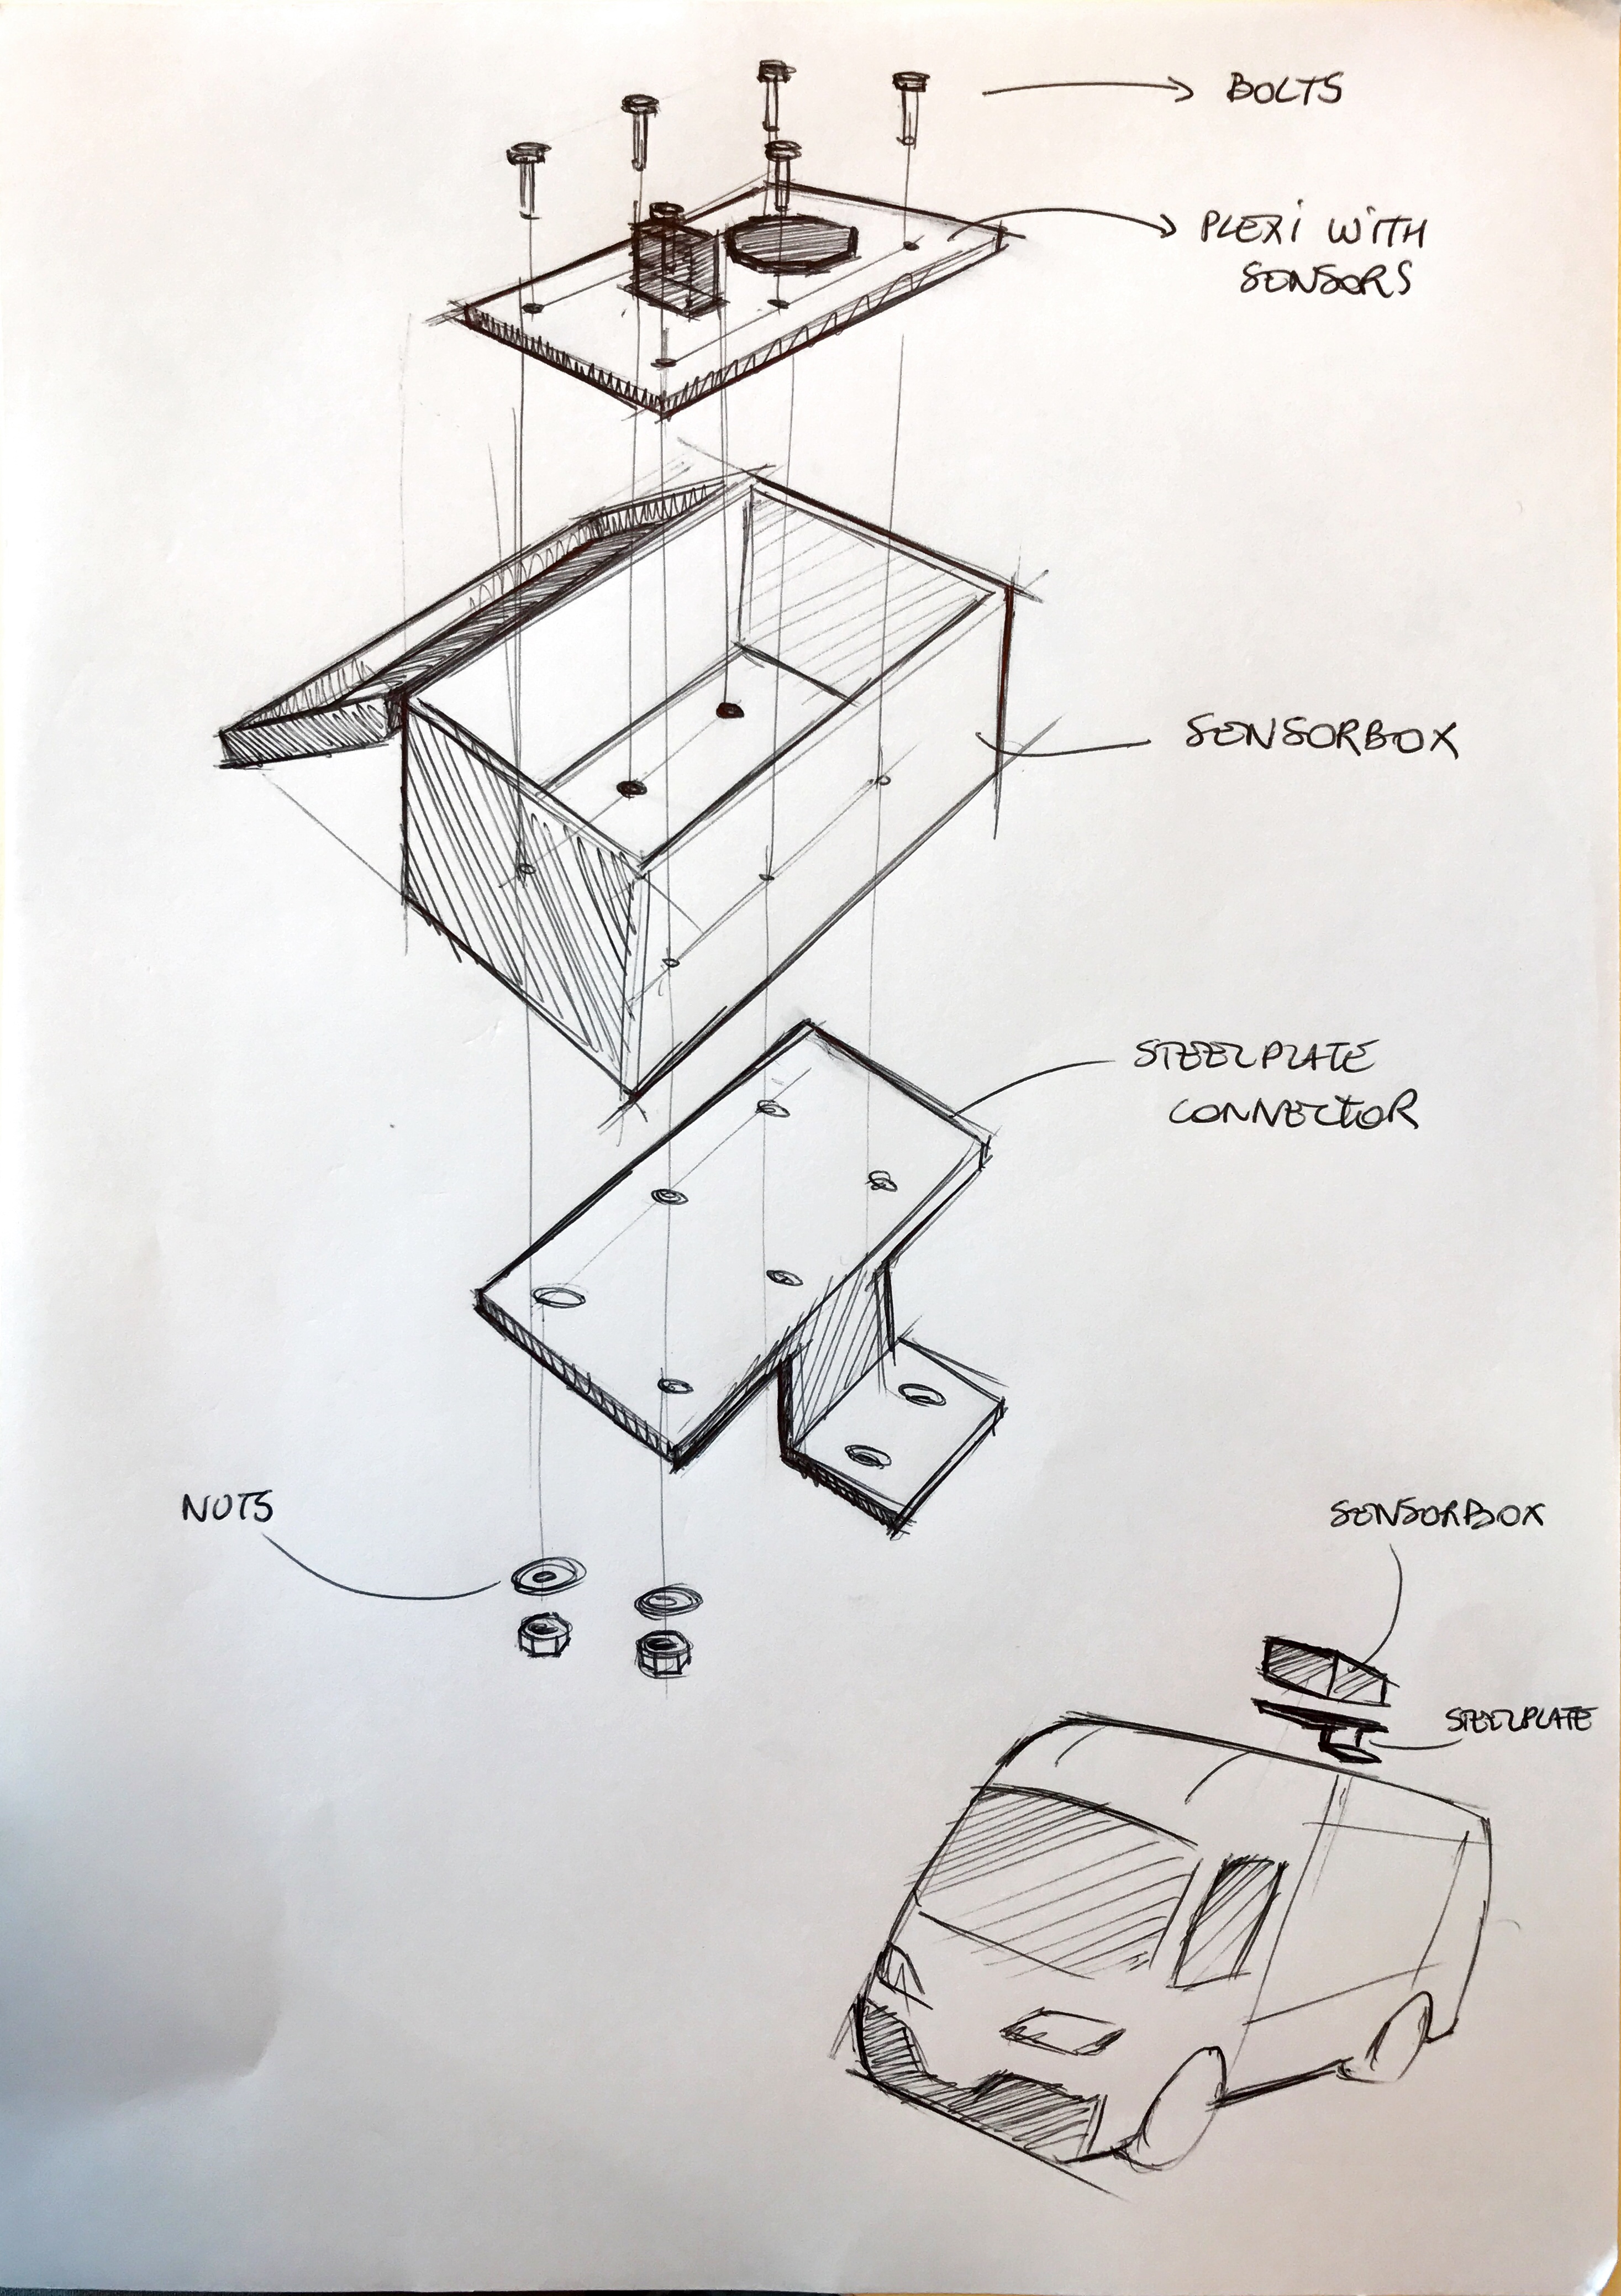 BOLTS
PLEXI WITH
SENSORS
SENSORBOX
STEELPLATE
CONNECTOR
NUTS
SENSORBOX
STEELPLATE